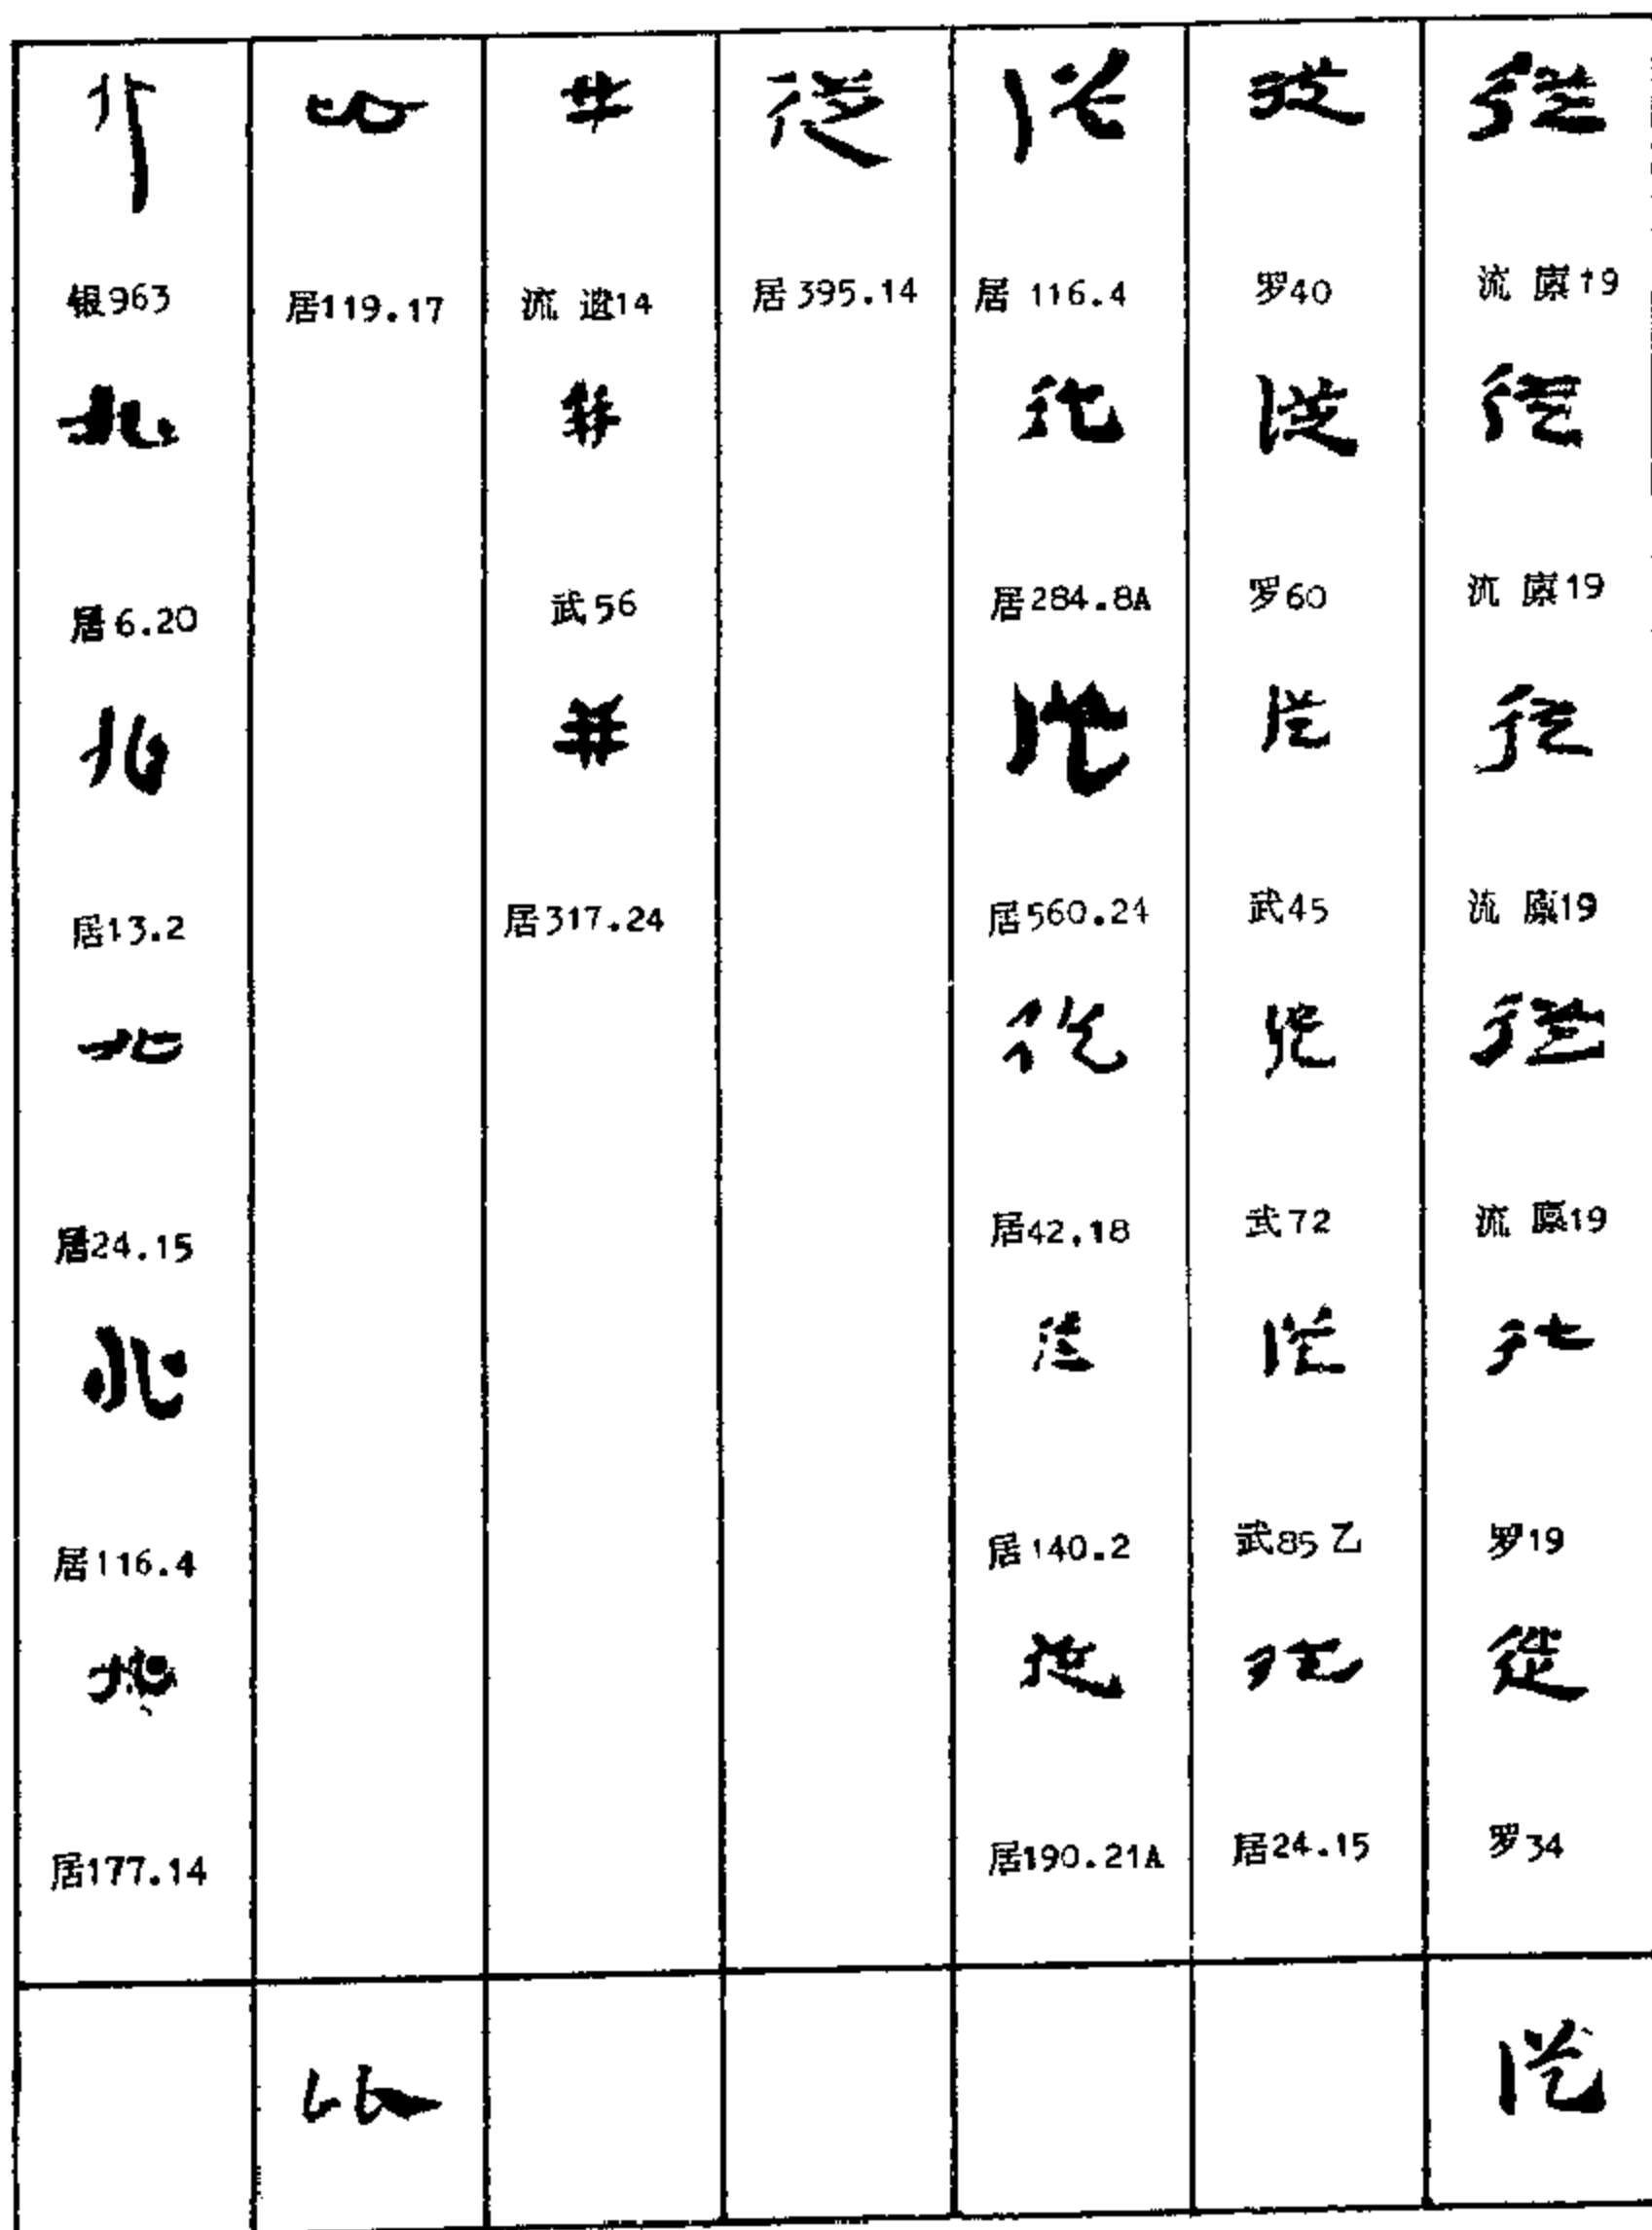 從
流 廪19
從
流 廪19
從
流 廪19
從
流 廪19
從
罗19
從
罗34
從
從
罗40
從
罗60
從
武45
從
武72
從
武85乙
從
居24.15
從
居116.4
從
居284.8A
從
居560.24
從
居42.18
從
居140.2
從
居190.21A
從
居395.14
并
流 遗14
并
武56
并
居317.24
比
居119.17
比
银963
北
居6.20
北
居13.2
北
居24.15
北
居116.4
北
居177.14